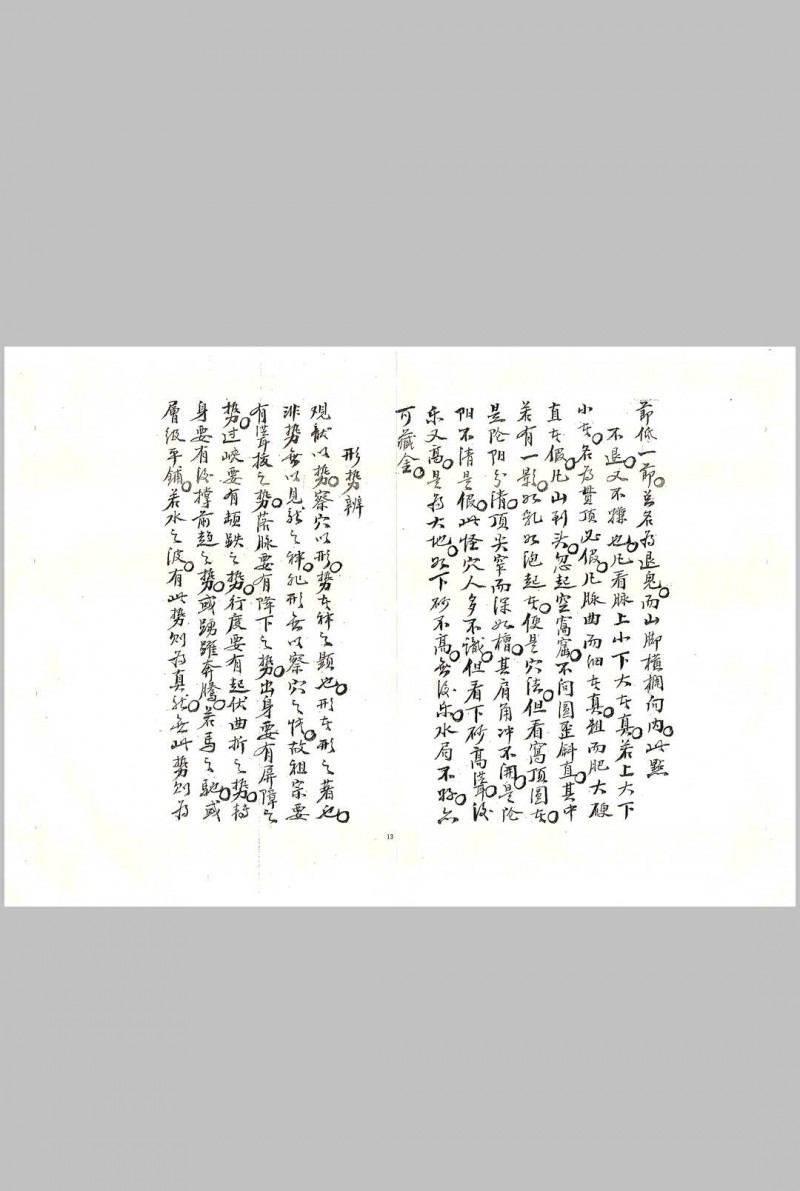 節低一節並名為退鬼。而山脚横欄向内。此點
不退又不揉也。凡看脉上小下大者真。若上大下
小者。名為貫頂必假。凡脉曲而细者真。粗而肥大硬
直者假。凡山到头。忽起空窩窟。不问圆歪斜直。其中
若有一影。如乳如泡起者。便是穴法。但看窩頂圆者。
是陰阳分清。頂尖窄而深如槽。其肩角冲不開。是陰
阳不清是假。此怪穴人多不識。但看下砂高聳。後
乐又高。是為大地。如下砂不高。無後乐。水局不好。亦
可藏金。
形势辨
观龍以势。察穴以形。势者神之顯也。形者形之著也。
非势無以見龍之神。非形無以察穴之情。故祖宗要
有聳拔之势。落脉要有降下之势。出身要有屏障之
势。过峡要有頓跌之势。行度要有起伏曲折之势。轉
身要有後撑前趋之势。或踴躍奔騰。若馬之馳。或
層级平鋪。若水之波。有此势则為真龍。無此势则為
13